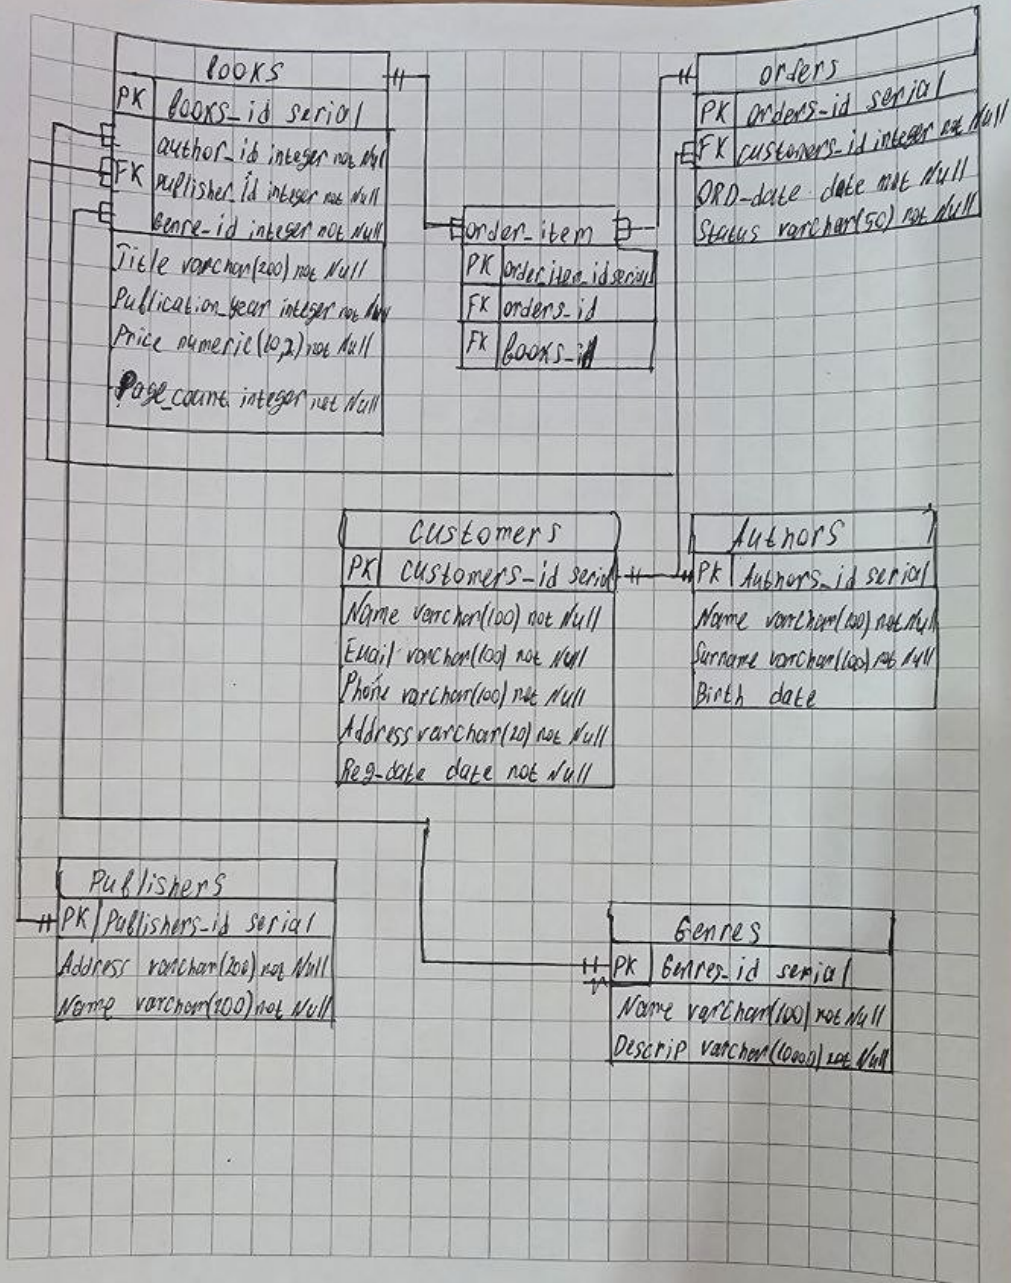 books
PK books_id serial
author_id integer not Null
FK publisher_id integer not Null
Genre_id integer not Null
Title varchar(200) not Null
Publication_year integer not Null
Price numeric(10,2) not Null
Page_count integer not Null
orders
PK orders_id serial
FK customers_id integer not Null
ORD_date date not Null
Status varchar(50) not Null
order_item
PK order_item_id serial
FK orders_id
FK books_id
Customers
PK customers_id serial
Name varchar(100) not Null
Email varchar(100) not Null
Phone varchar(100) not Null
Address varchar(20) not Null
Reg_date date not Null
Authors
PK Authors_id serial
Name varchar(100) not Null
Surname varchar(100) not Null
Birth date
Publishers
PK Publishers_id serial
Address varchar(200) not Null
Name varchar(200) not Null
Genres
PK Genres_id serial
Name varchar(100) not Null
Descrip varchar(10000) not Null